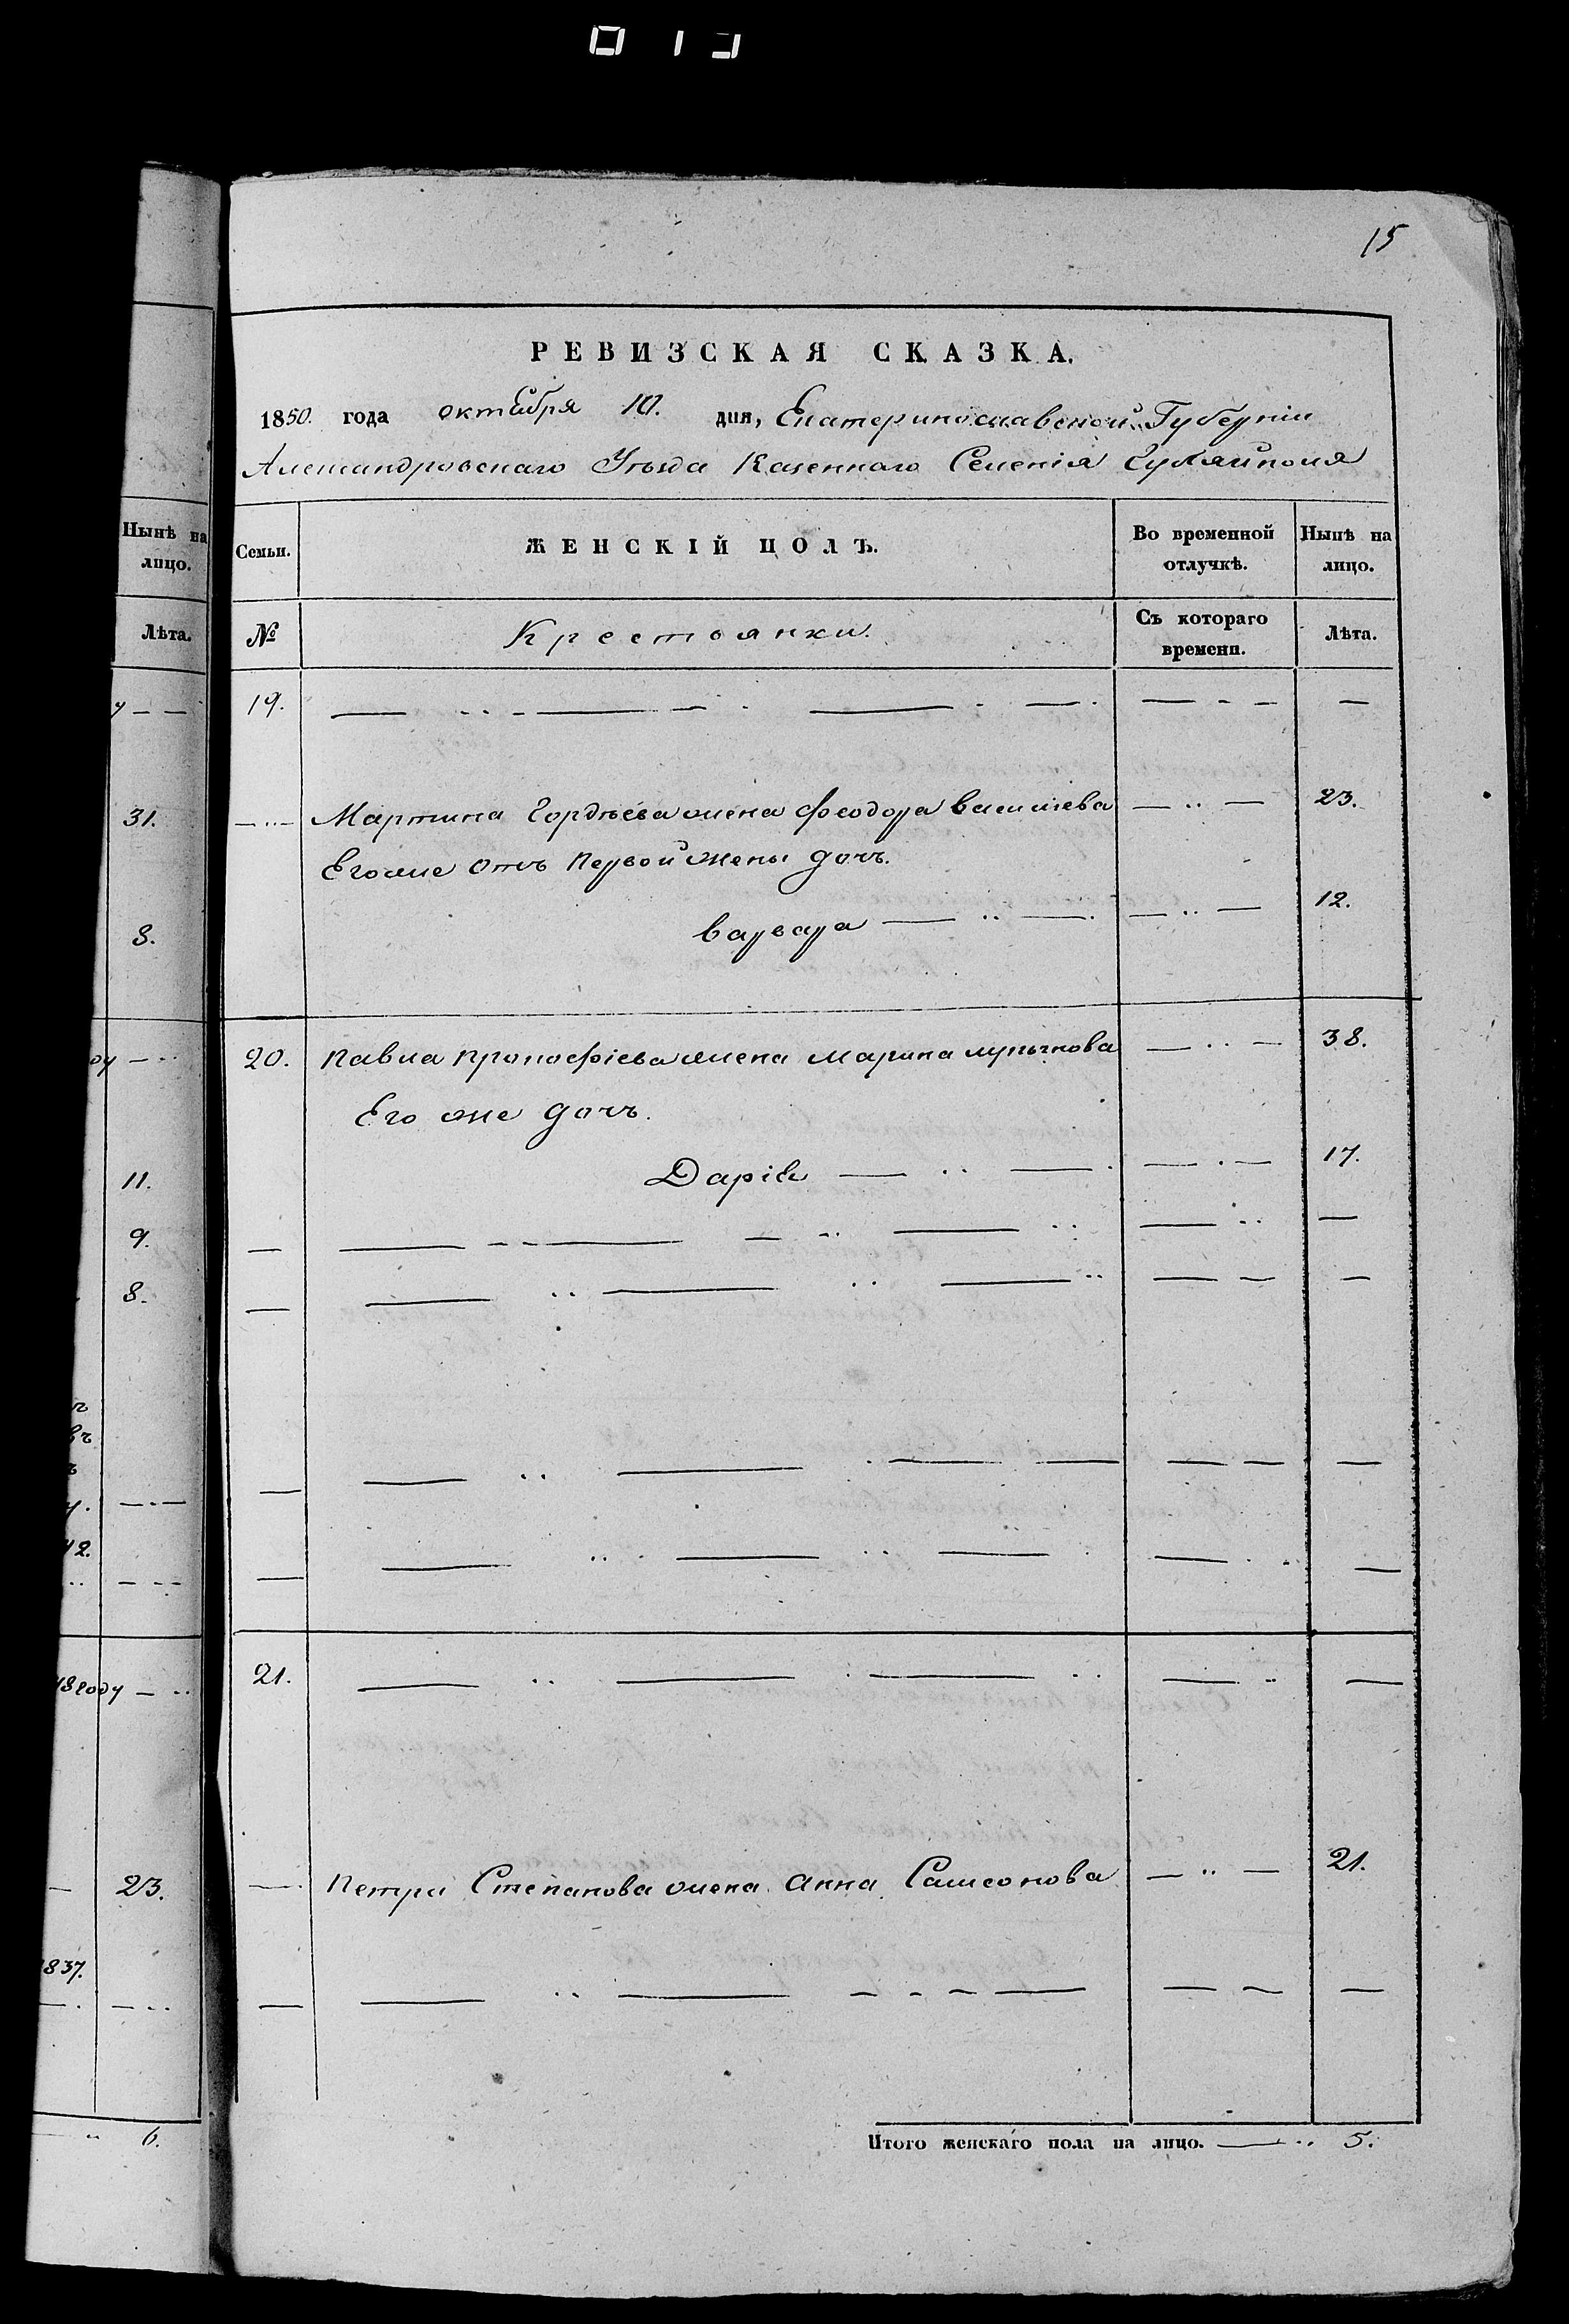 15
РЕВИЗСКАЯ СКАЗКА.
1850. года октября 10. дня, Екатеринославской Губерніи
Александровскаго Уѣзда Казеннаго Селенія Гуляйполя
Нынѣ на лицо.
Семьи.
ЖЕНСКІЙ ПОЛЪ.
Во временной отлучкѣ.
Нынѣ на лицо.
Лѣта.
№
Крестьянки.
Съ котораго времени.
Лѣта.
19.
31.
Мартина Гордѣева жена Феодора Васильева 23.
Его же отъ первой жены дочь.
8.
Варвара 12.
20. Павла Прокофіева жена Марина 38.
Его же дочь.
11.
Дарія 17.
9.
8.
42.
48 году
21.
23.
Петра Степанова жена Анна Самсонова 21.
1837.
6.
Итого женскаго пола на лицо. 5.